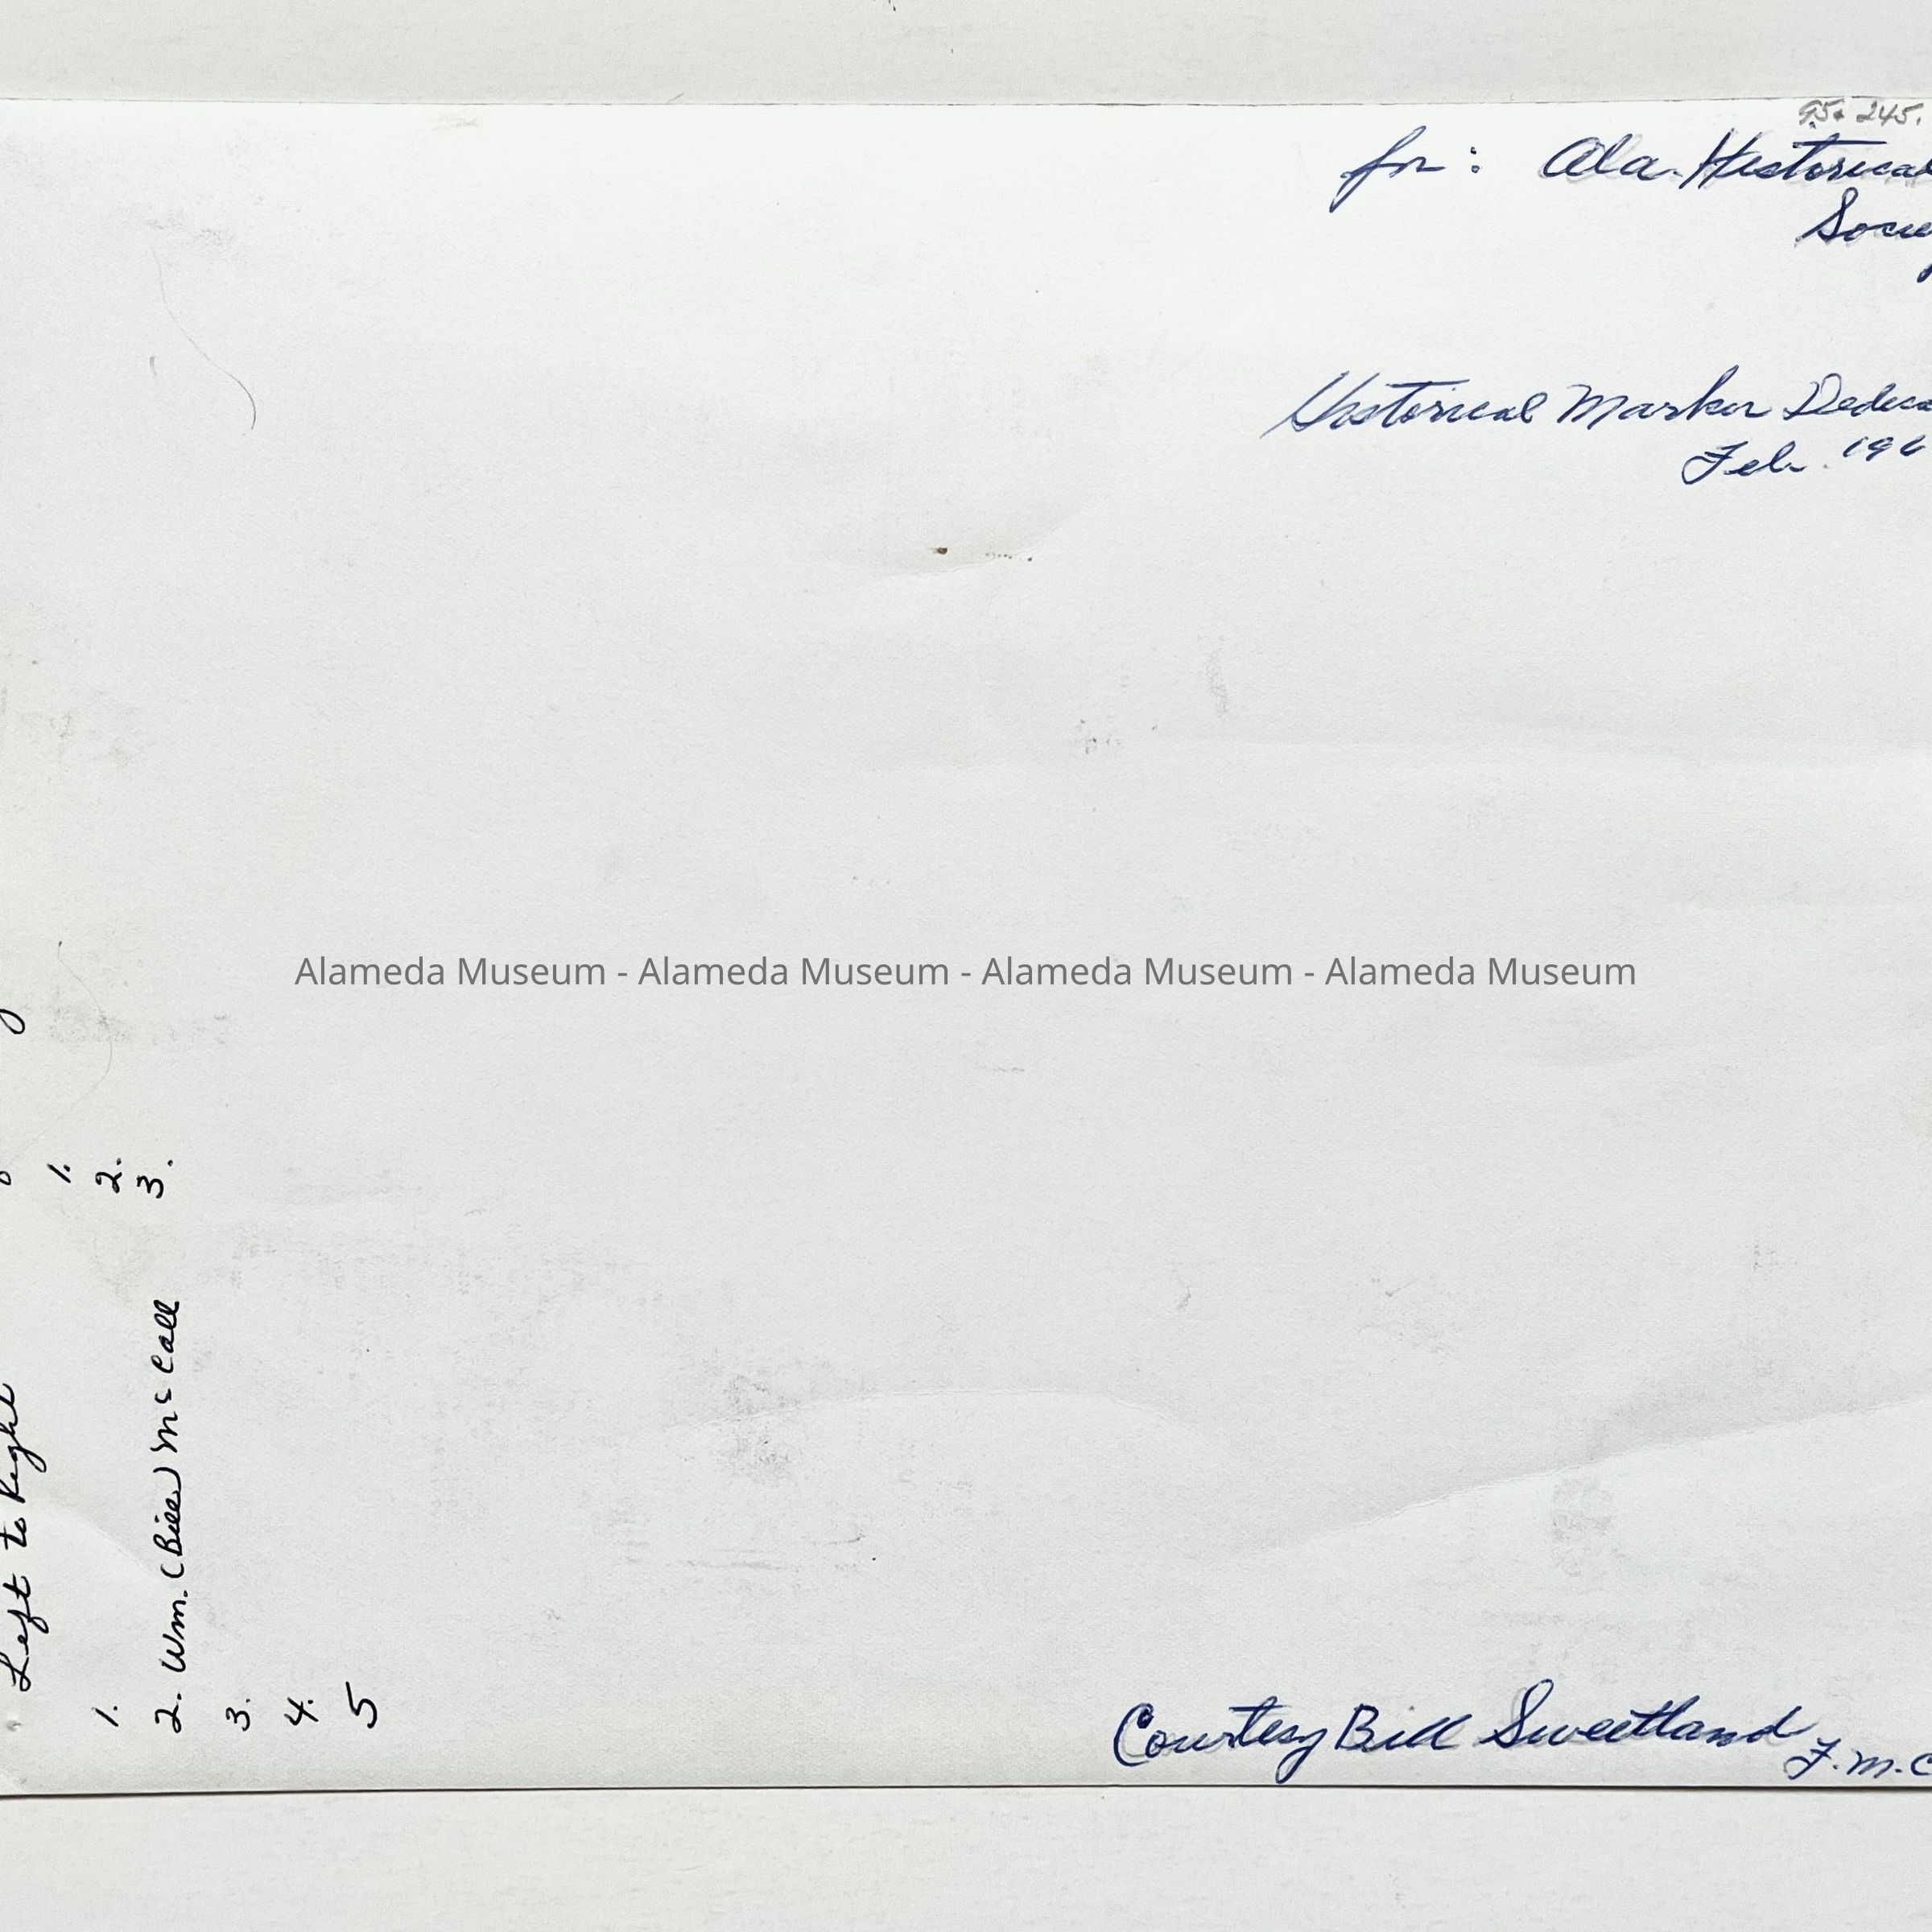 95. 245.
for: Ala. Historical
Socie
Historical Marker Dedica
Feb. 196
Alameda Museum - Alameda Museum - Alameda Museum - Alameda Museum
Left to Right
1.
2. Wm. (Bill) McCall
3.
4.
5
1.
2.
3.
Courtesy Bill Sweetland
F.M.C